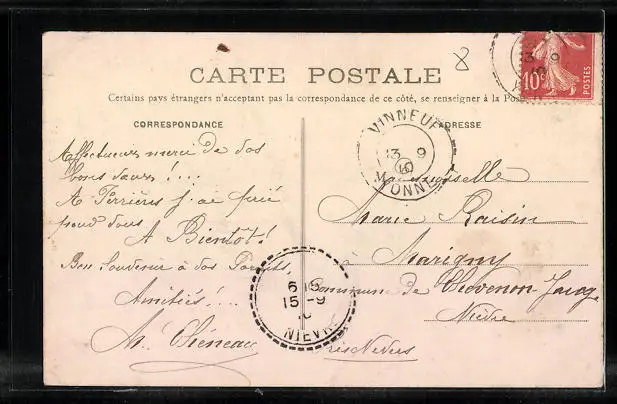 8
10c
POSTES
CARTE POSTALE
Certains pays étrangers n'acceptant pas la correspondance de ce côté, se renseigner à la Pos
CORRESPONDANCE
Affectueux merci de vos
bons vœux! ...
A Ferrières j'ai prié
pour vous
A Bientôt!
Bon Souvenir à vos Parents,
Amitiés! ...
VINNEUF
13 9
10
YONNE
ADRESSE
Mademoiselle
Marie Raisin
Marigny
Commune de Chevenon-Jaugenay
Nièvre
près Nevers
6
15-9
10
NIEVRE